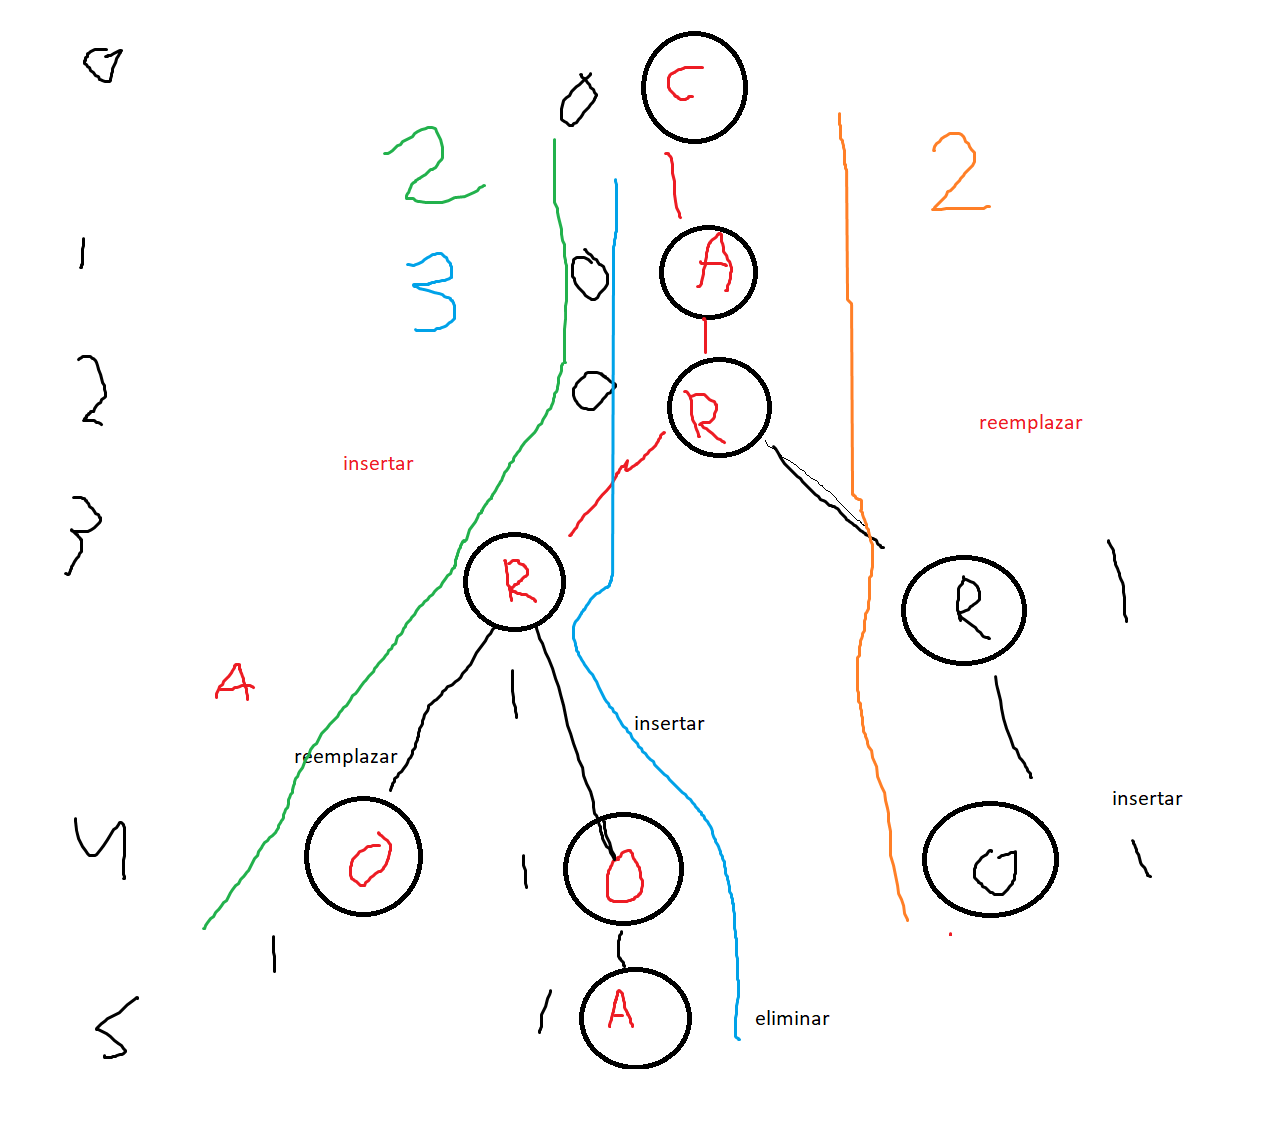 0
0 C
2 2
1 3 0 A
2 0 R
reemplazar
insertar
3 R R 1
A 1
insertar
reemplazar
insertar
4 O 1 O O 1
1
5 1 A eliminar